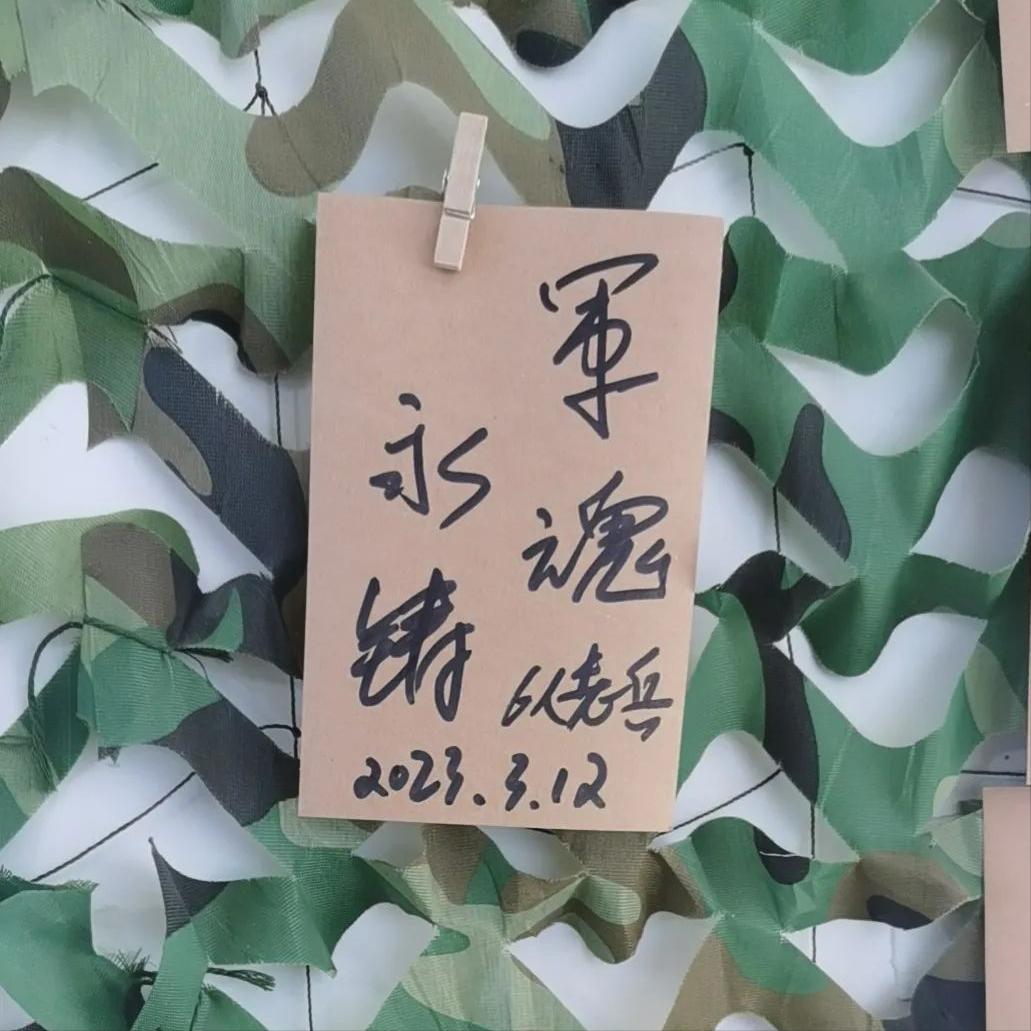 軍魂
永铸
6人老兵
2023.3.12